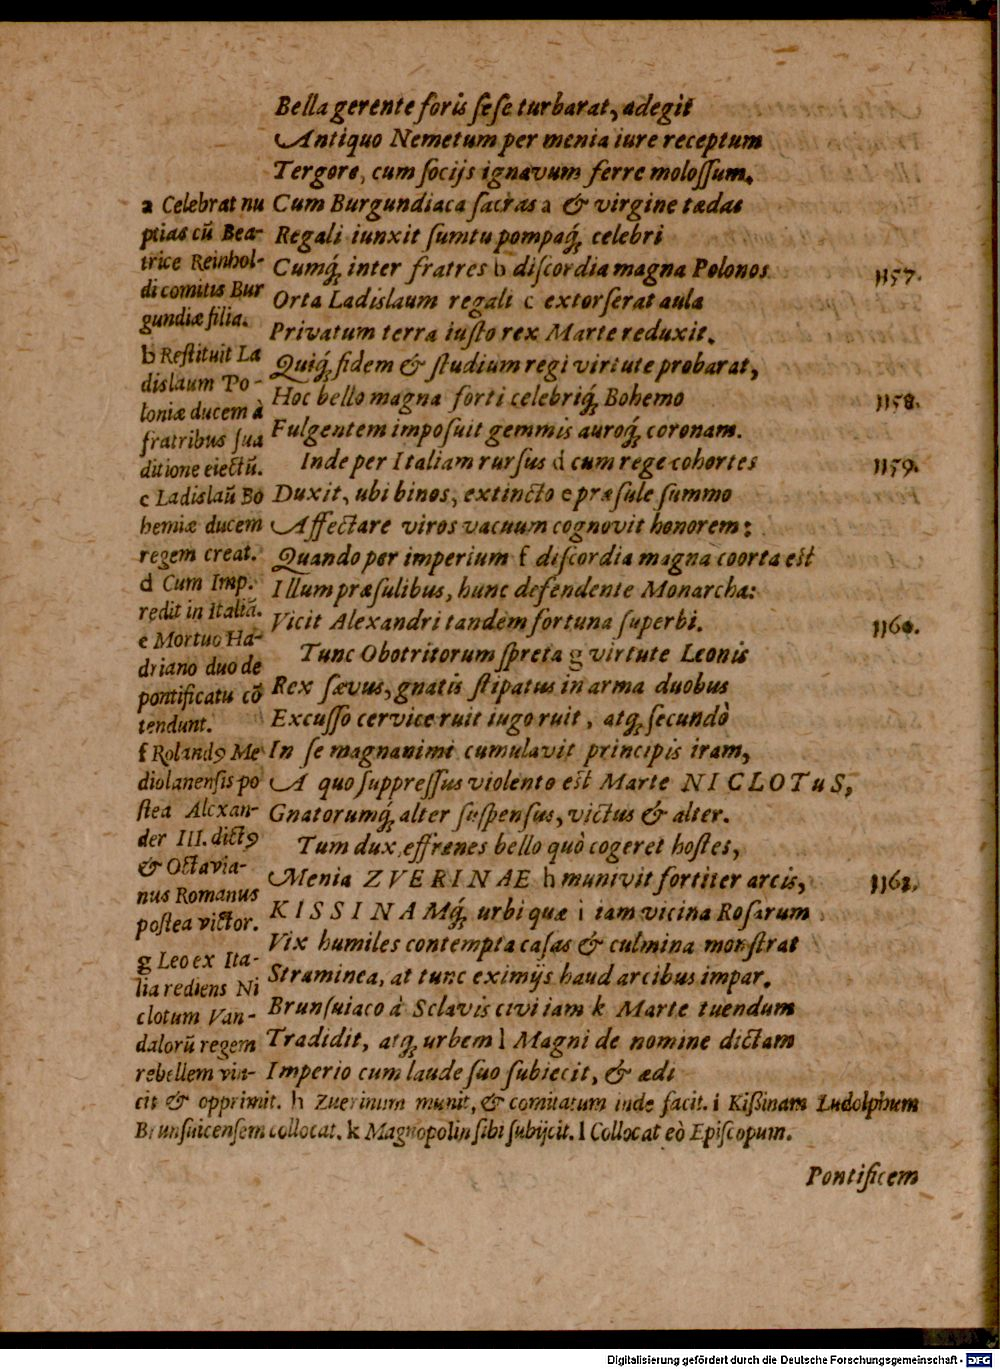 Bella gerente foris ſeſe turbarat, adegit
Antiquo Nemetum per menia iure receptum
Tergore, cum ſocijs ignavum ferre moloſſum.
Cum Burgundiaca ſacras a & virgine tædas
Regali iunxit ſumtu pompaq́; celebri
Cumq́; inter fratres b diſcordia magna Polonos
Orta Ladislaum regali c extorſerat aula
Privatum terra iuſto rex Marte reduxit.
Quiq́; fidem & ſtudium regi virtute probarat,
Hoc bello magna forti celebriq́; Bohemo
Fulgentem impoſuit gemmis auroq́; coronam.
Inde per Italiam rurſus d cum rege cohortes
Duxit, ubi binos, extincto e præſule ſummo
Affectare viros vacuum cognovit honorem:
Quando per imperium f diſcordia magna coorta eſt
Illum præſulibus, hunc defendente Monarcha:
Vicit Alexandri tandem fortuna ſuperbi.
Tunc Obotritorum ſpreta g virtute Leonis
Rex ſævus, gnatis ſtipatus in arma duobus
Excuſſo cervice ruit iugo ruit, atq́; ſecundò
In ſe magnanimi cumulavit principis iram,
A quo ſuppreſſus violento eſt Marte NICLOTuS,
Gnatorumq́; alter ſuſpenſus, victus & alter.
Tum dux effrenes bello quò cogeret hoſtes,
Menia ZVERINAE h munivit fortiter arcis,
KISSINAMq́; urbi quæ i iam vicina Roſarum
Vix humiles contempta caſas & culmina monſtrat
Straminea, at tunc eximijs haud arcibus impar.
Brunſuiaco à Sclavis civi iam k Marte tuendum
Tradidit, atq́; urbem l Magni de nomine dictam
Imperio cum laude ſuo ſubiecit, & ædi
1157.
1158.
1159.
1160.
1161.
a Celebrat nu
ptias cū Bea-
trice Reinhol-
di comitis Bur
gundiæ filia.
b Reſtituit La
dislaum Po-
loniæ ducem à
fratribus ſua
ditione eiectū.
c Ladislaū Bo
hemiæ ducem
regem creat.
d Cum Imp.
redit in Italiā.
e Mortuo Ha-
driano duo de
pontificatu cō
tendunt.
f Rolandꝰ Me
diolanenſis po
ſtea Alexan-
der III. dictꝰ
& Octavia-
nus Romanus
poſtea victor.
g Leo ex Ita-
lia rediens Ni
clotum Van-
dalorū regem
rebellem vin-
cit & opprimit. h Zuerinum munit, & comitatum inde facit. i Kißinam Ludolphum
Brunſuicenſem collocat. k Magnopolin ſibi ſubijcit. l Collocat eò Epiſcopum.
Pontificem
Digitalisierung gefördert durch die Deutsche Forschungsgemeinschaft - DFG